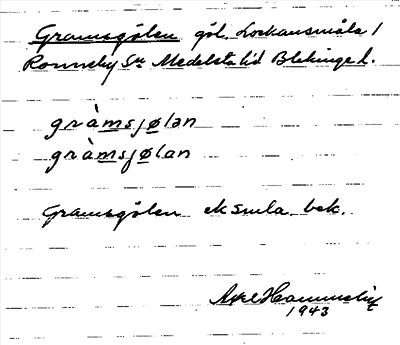 Gramsgölen göl. Lockansmåla 1
Ronneby Sn Medelsta hd Blekinge l.
gràmsjølən
gràmsjølan
Gramsgölen ek smla bek.
Axel
1943